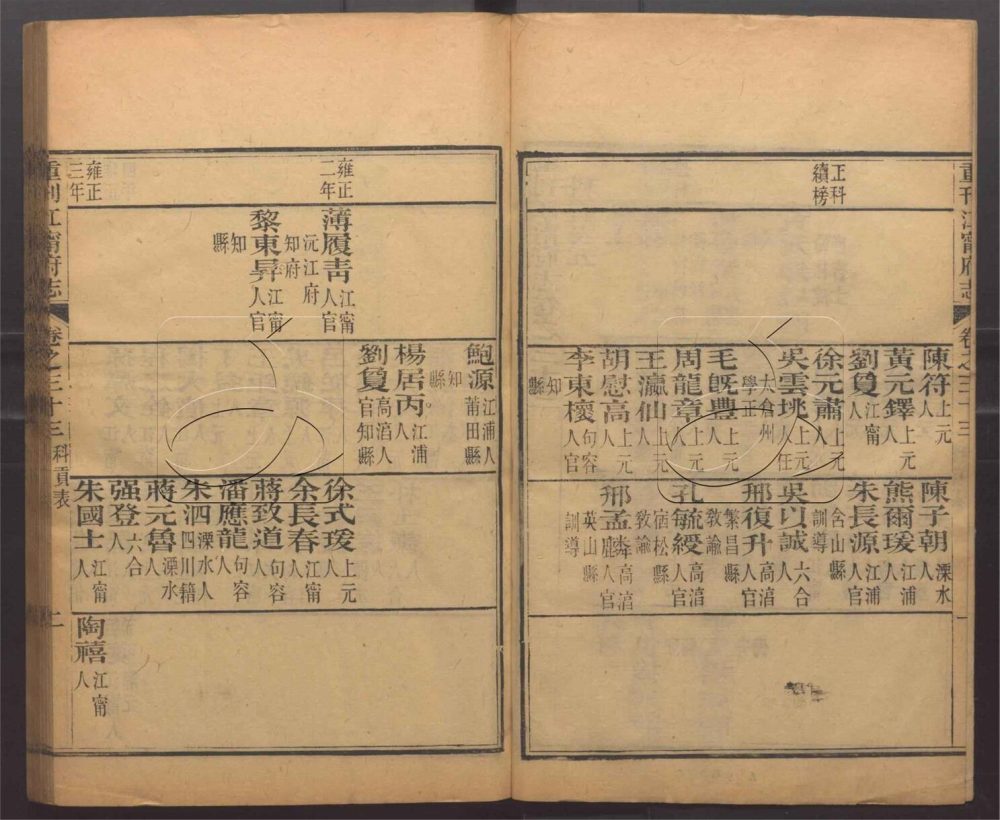 重刊江甯府志
卷之三十三
一
正科續榜
陳符上元人
黃元鐸上元人
劉㚟江甯人
徐元肅上元人
吳雲垗上元人任太倉州學正
毛旣豐上元人
周龍章上元人
王瀛仙上元人
胡慰高上元人
李東櫰句容人官知縣
陳子朝溧水人
熊爾瑗江浦人
朱長源江浦人官含山縣訓導
吳以誠六合人
邢復升高淳人官繁昌縣教諭
孔毓綬高淳人官宿松縣教諭
邢孟麟高淳人官英山縣訓導
雍正二年
薄履靑江甯人官沅江府知府
黎東昇江甯人官知縣
鮑源江浦人莆田縣知縣
楊居丙江浦人
劉㚟高淳人官知縣
徐式瑗上元人
余長春江甯人
蔣致道句容人
潘應龍句容人
朱泗溧水人四川籍
蔣元魯溧水人
强登六合人
雍正三年
朱國士江甯人
陶禧江甯人
重刊江甯府志
卷之三十三
科貢表
二